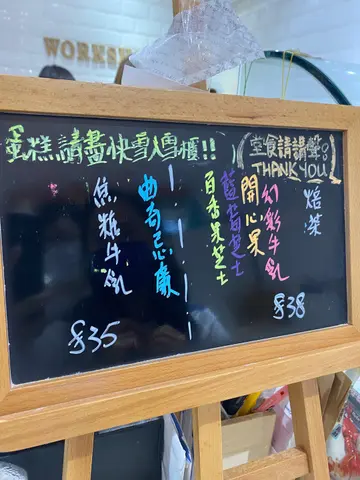 WORKSH
蛋糕請盡快雪入雪櫃!!
(堂食請講聲。
THANK YOU)
焙茶
幻彩牛乳
開心果
藍莓芝士
百香果芝士
$38
曲奇忌廉
焦糖牛乳
$35